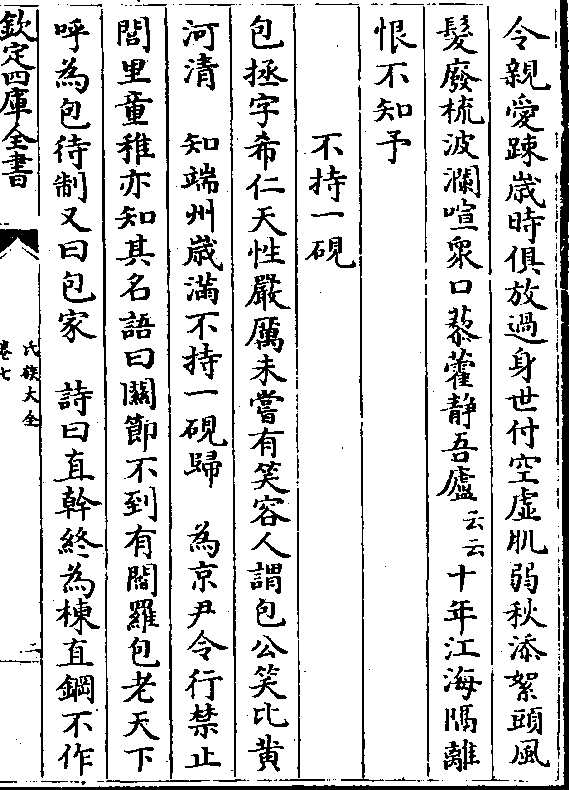 令親愛踈歳時俱放過身世付空虛肌弱秋添絮頭風
髮廢梳波瀾喧衆口藜藿静吾廬云云十年江海隔離
恨不知予
不持一硯
包拯字希仁天性嚴厲未嘗有笑容人謂包公笑比黄
河清　知端州歳滿不持一硯歸　為京尹令行禁止
閭里童稚亦知其名語曰關節不到有閻羅包老天下
呼為包待制又曰包家　詩曰直幹終為棟直鋼不作
欽定四庫全書
氏族大全
卷七
二